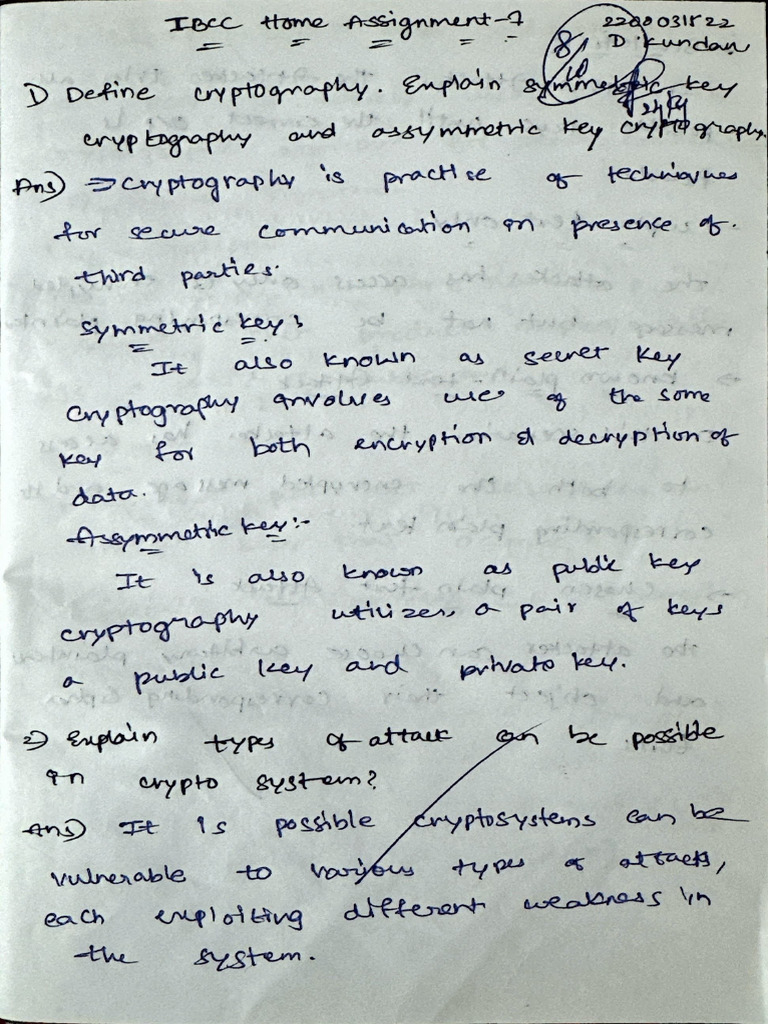 IBCC Home Assignment-1
2200031822
D. Kundan
8/10
1) Define cryptography. Explain symmetric key
cryptography and assymmetric key cryptography.
Ans) ⇒ cryptography is practise of techniques
for secure communication in presence of
third parties.
symmetric key:
It also known as secret key
cryptography involves use of the same
key for both encryption & decryption of
data.
Assymmetric key:-
It is also known as public key
cryptography utilizes a pair of keys
a public key and private key.
2) Explain types of attack can be possible
in crypto system?
Ans) It is possible cryptosystems can be
vulnerable to various types of attacks,
each exploiting different weakness in
the system.